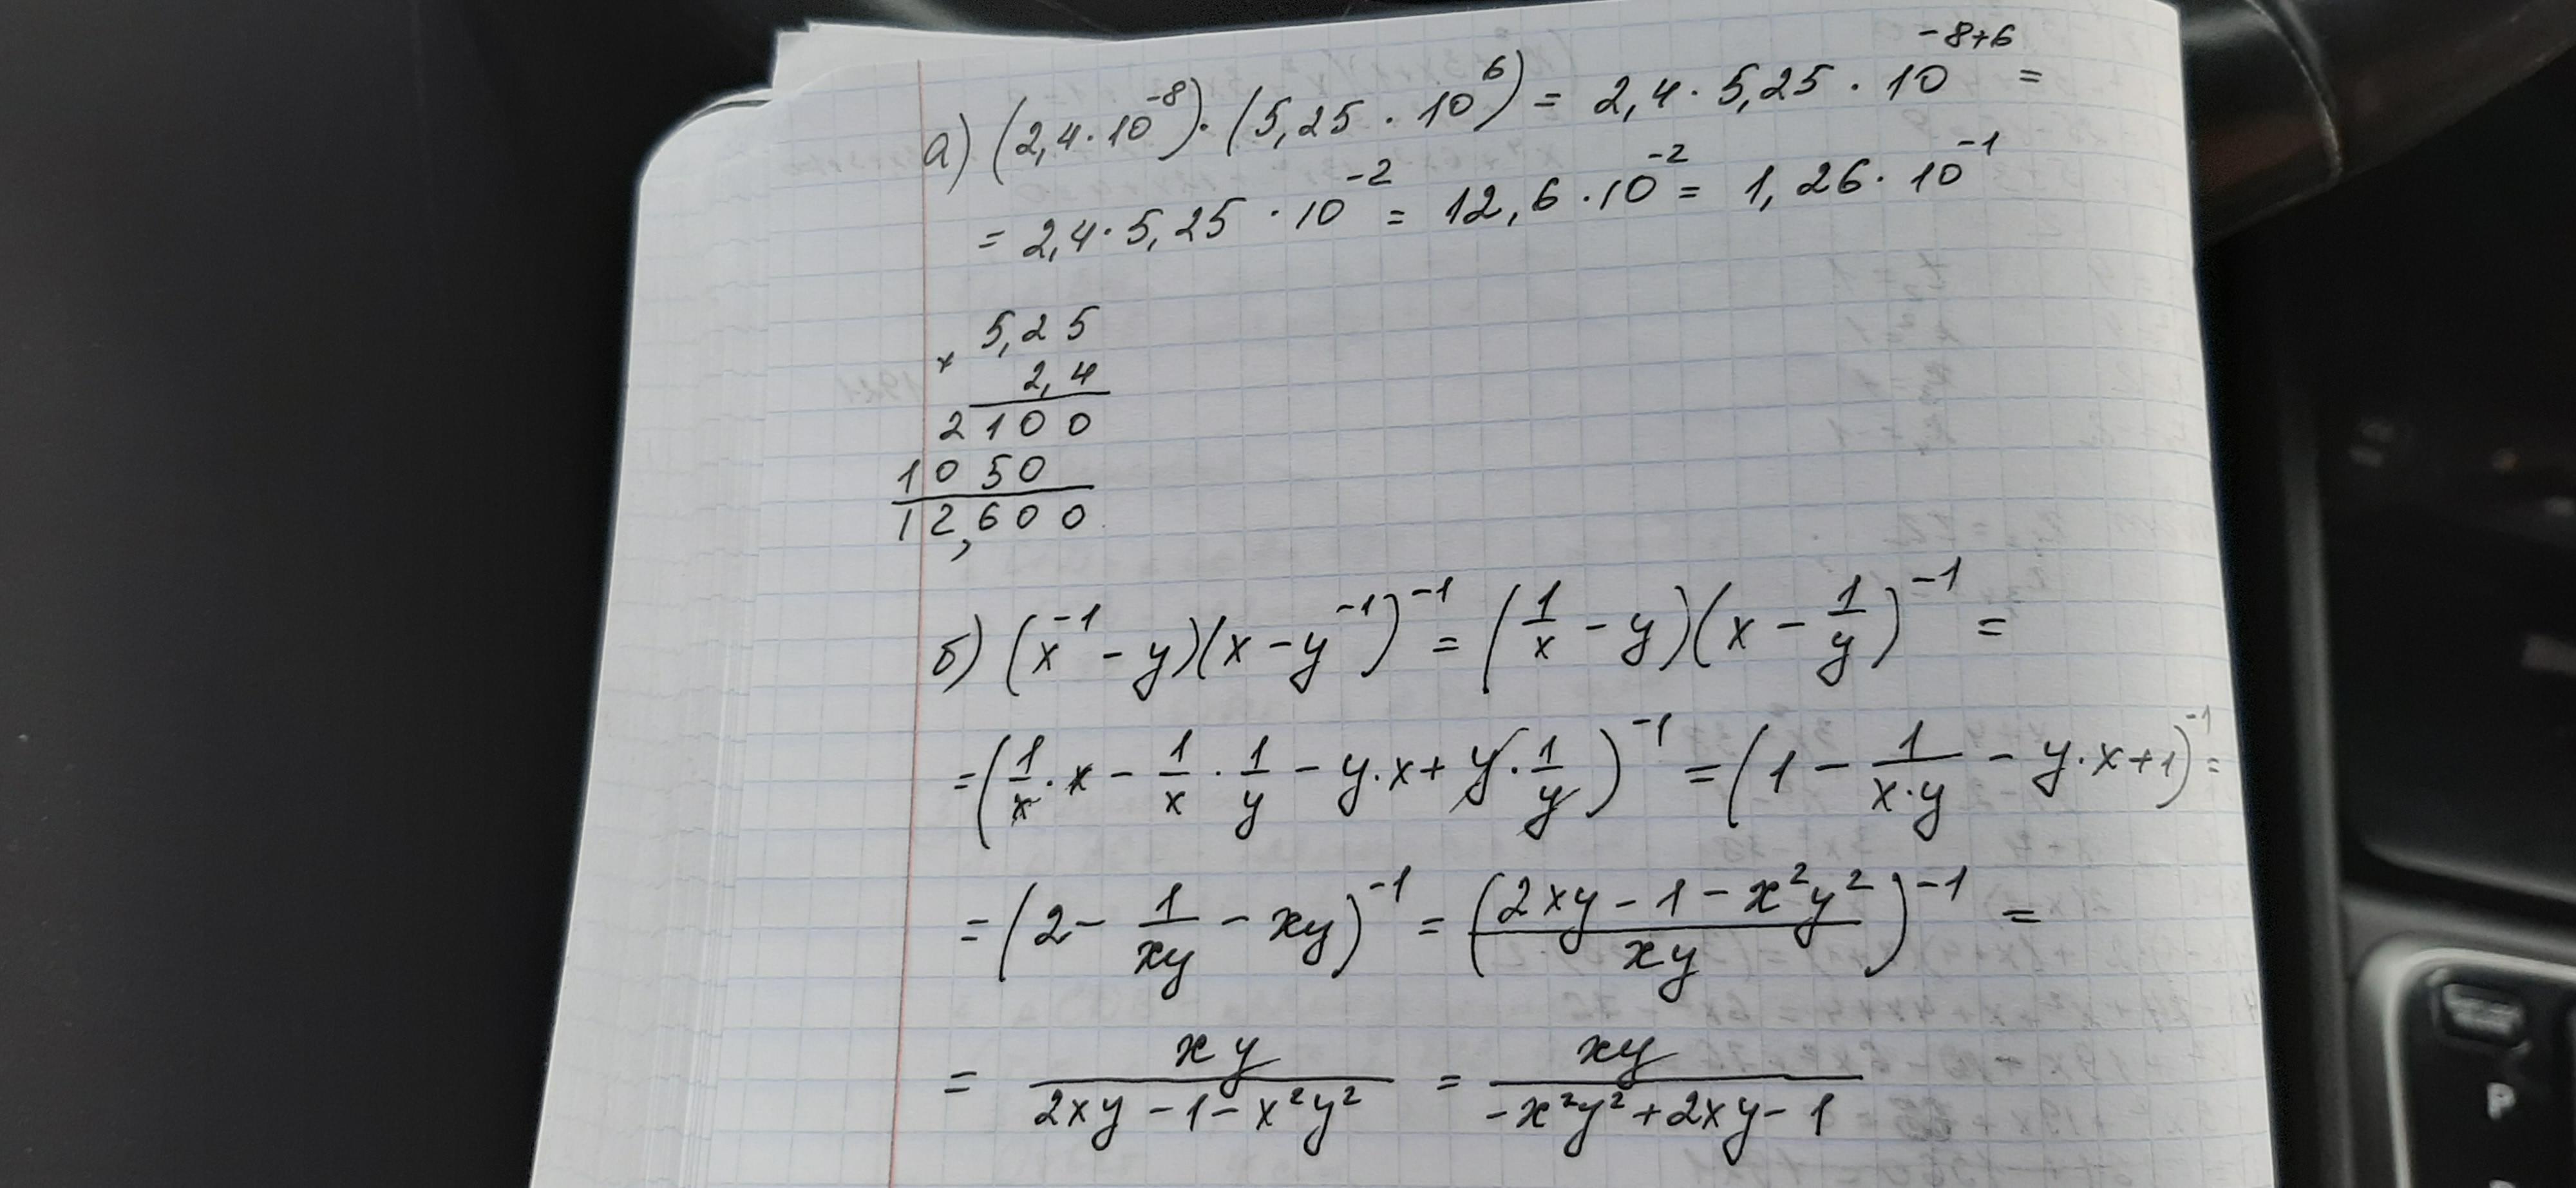 а) (2,4·10⁻⁸)·(5,25·10⁶) = 2,4·5,25·10⁻⁸⁺⁶ =
= 2,4·5,25·10⁻² = 12,6·10⁻² = 1,26·10⁻¹
5,25
× 2,4
2100
1050
12,600
б) (x⁻¹ - y)(x - y⁻¹)⁻¹ = (1/x - y)(x - 1/y)⁻¹ =
= (1/x · x - 1/x · 1/y - y·x + y·1/y)⁻¹ = (1 - 1/x·y - y·x + 1)⁻¹ =
= (2 - 1/xy - xy)⁻¹ = (2xy - 1 - x²y²/xy)⁻¹ =
= xy/2xy - 1 - x²y² = xy/-x²y² + 2xy - 1
P